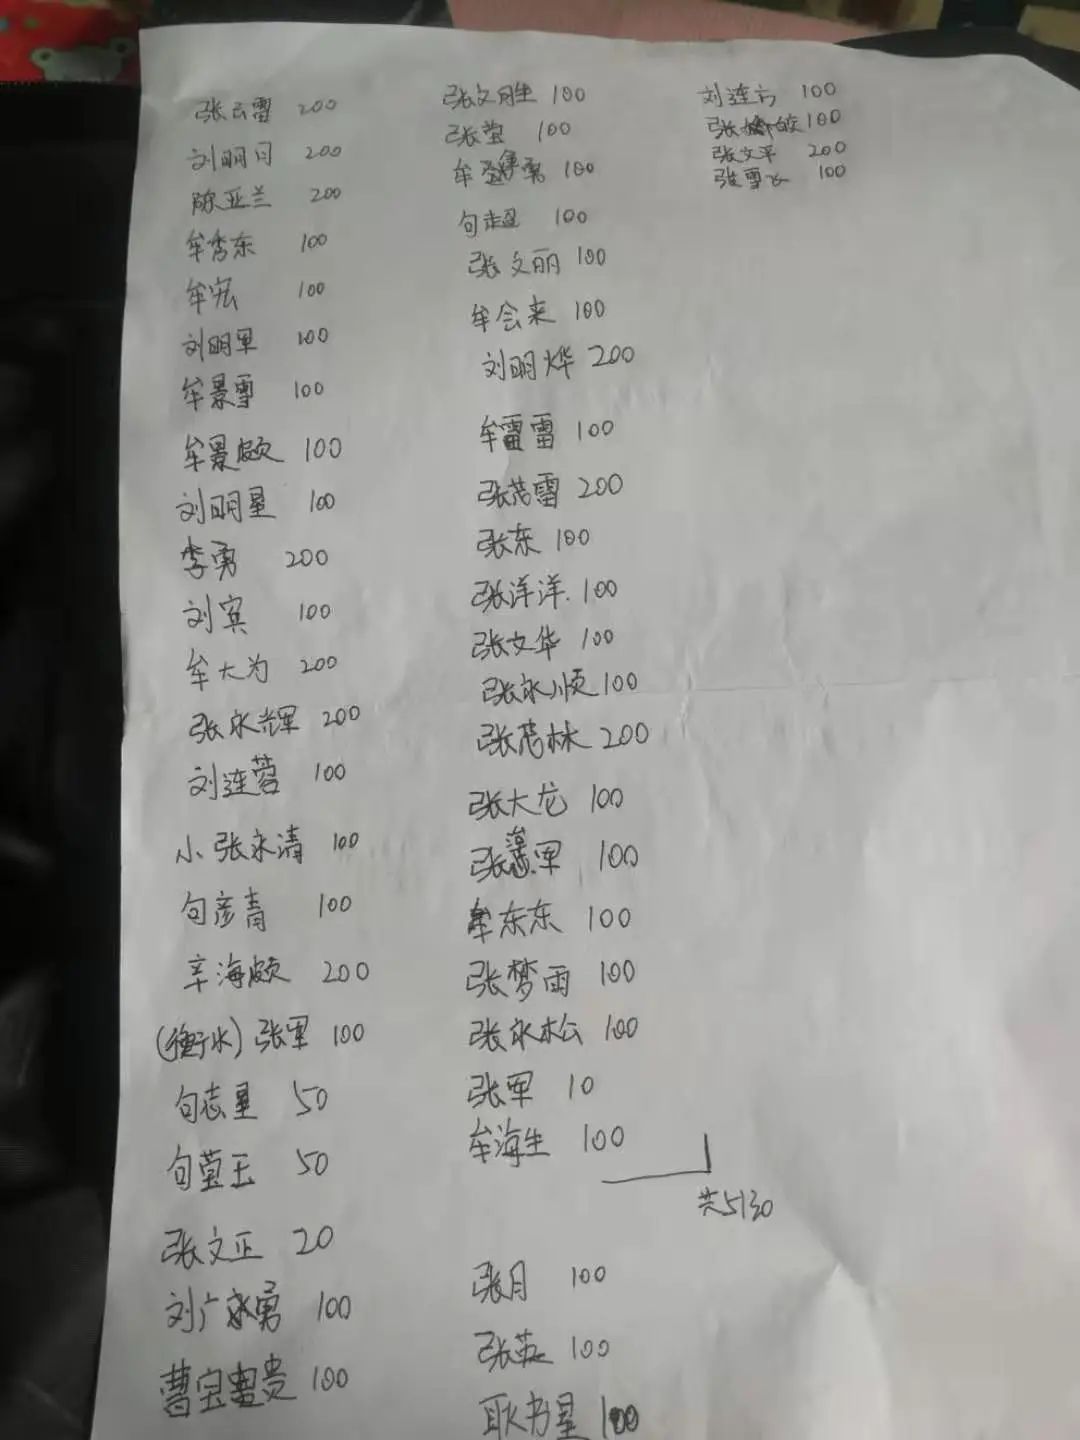 张云雷 200
刘明月 200
陈亚兰 200
牟秀东 100
牟宏 100
刘明军 100
牟景雪 100
牟景颇 100
刘明星 100
李勇 200
刘宾 100
牟大为 200
张永辉 200
刘连蓉 100
小张永清 100
句彦青 100
辛海颇 200
(衡水)张军 100
句志星 50
句莹玉 50
张文正 20
刘广勇 100
曹宝贵 100
张文胜 100
张莹 100
牟勇 100
句超 100
张文丽 100
牟会来 100
刘明烨 200
牟雷雷 100
张茂雷 200
张东 100
张洋洋 100
张文华 100
张永顺 100
张茂林 200
张大龙 100
张军 100
牟东东 100
张梦雨 100
张永松 100
张军 10
牟海生 100
共5130
张月 100
张英 100
耿书星 100
刘连方 100
张皎 100
张文平 200
张雪飞 100